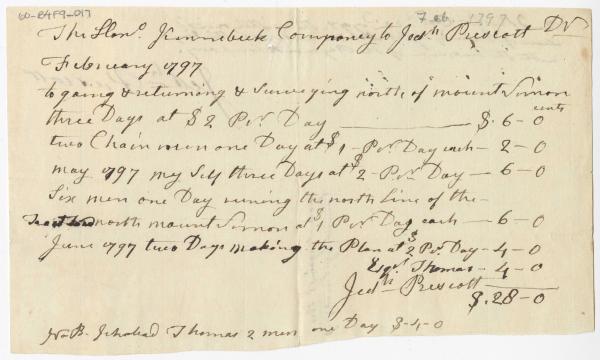 60-B4F9-017
Feb. 1797
The Honl. Kinnebeck Componey to Jedh. Prescott Dr
February 1797
to going & returning & surveying north of mount Vernon
cents
three Days at $2 Pr. Day $.6-0
two Chain men one Day at $1 - Pr. Day each - 2-0
may 1797 my Self three Days at $2 - Pr. Day - 6-0
Six men one Day runing the north Line of the
north mount Vernon at $1 Pr. Day each - 6-0
June 1797 two Days making the Plan at $2 Pr. Day - 4-0
Thomas - 4-0
Jedh. Prescott
$.28-0
N.B. Thomas 2 men one Day $-4-0